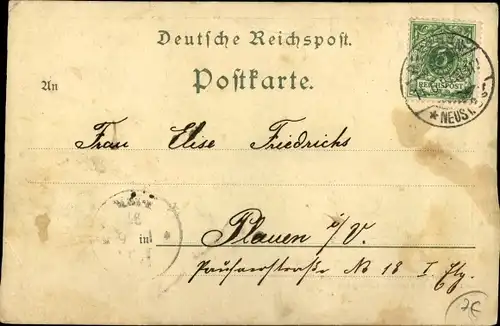 Deutsche Reichspost.
Postkarte.
5
REICHSPOST
An
* NEUST
Frau Elise Friedrichs
in Plauen i/V.
Pausaerstraße No 18 I. Etg.
7€